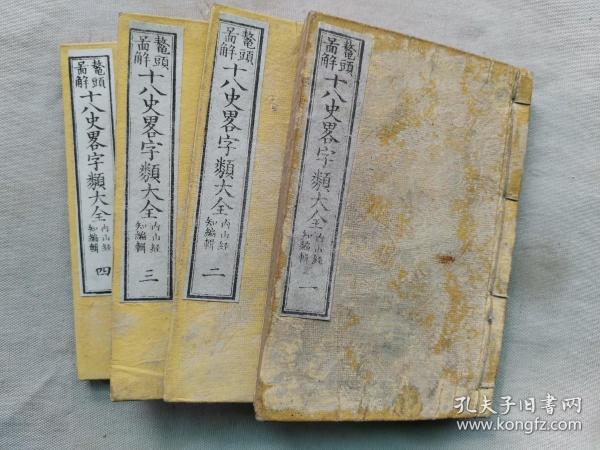 鼇頭
啚解
十八史畧字類大全
内山經
知編輯
一
鼇頭
啚解
十八史畧字類大全
内山經
知編輯
二
鼇頭
啚解
十八史畧字類大全
内山經
知編輯
三
鼇頭
啚解
十八史畧字類大全
内山經
知編輯
四
孔夫子旧书网
www.kongfz.com